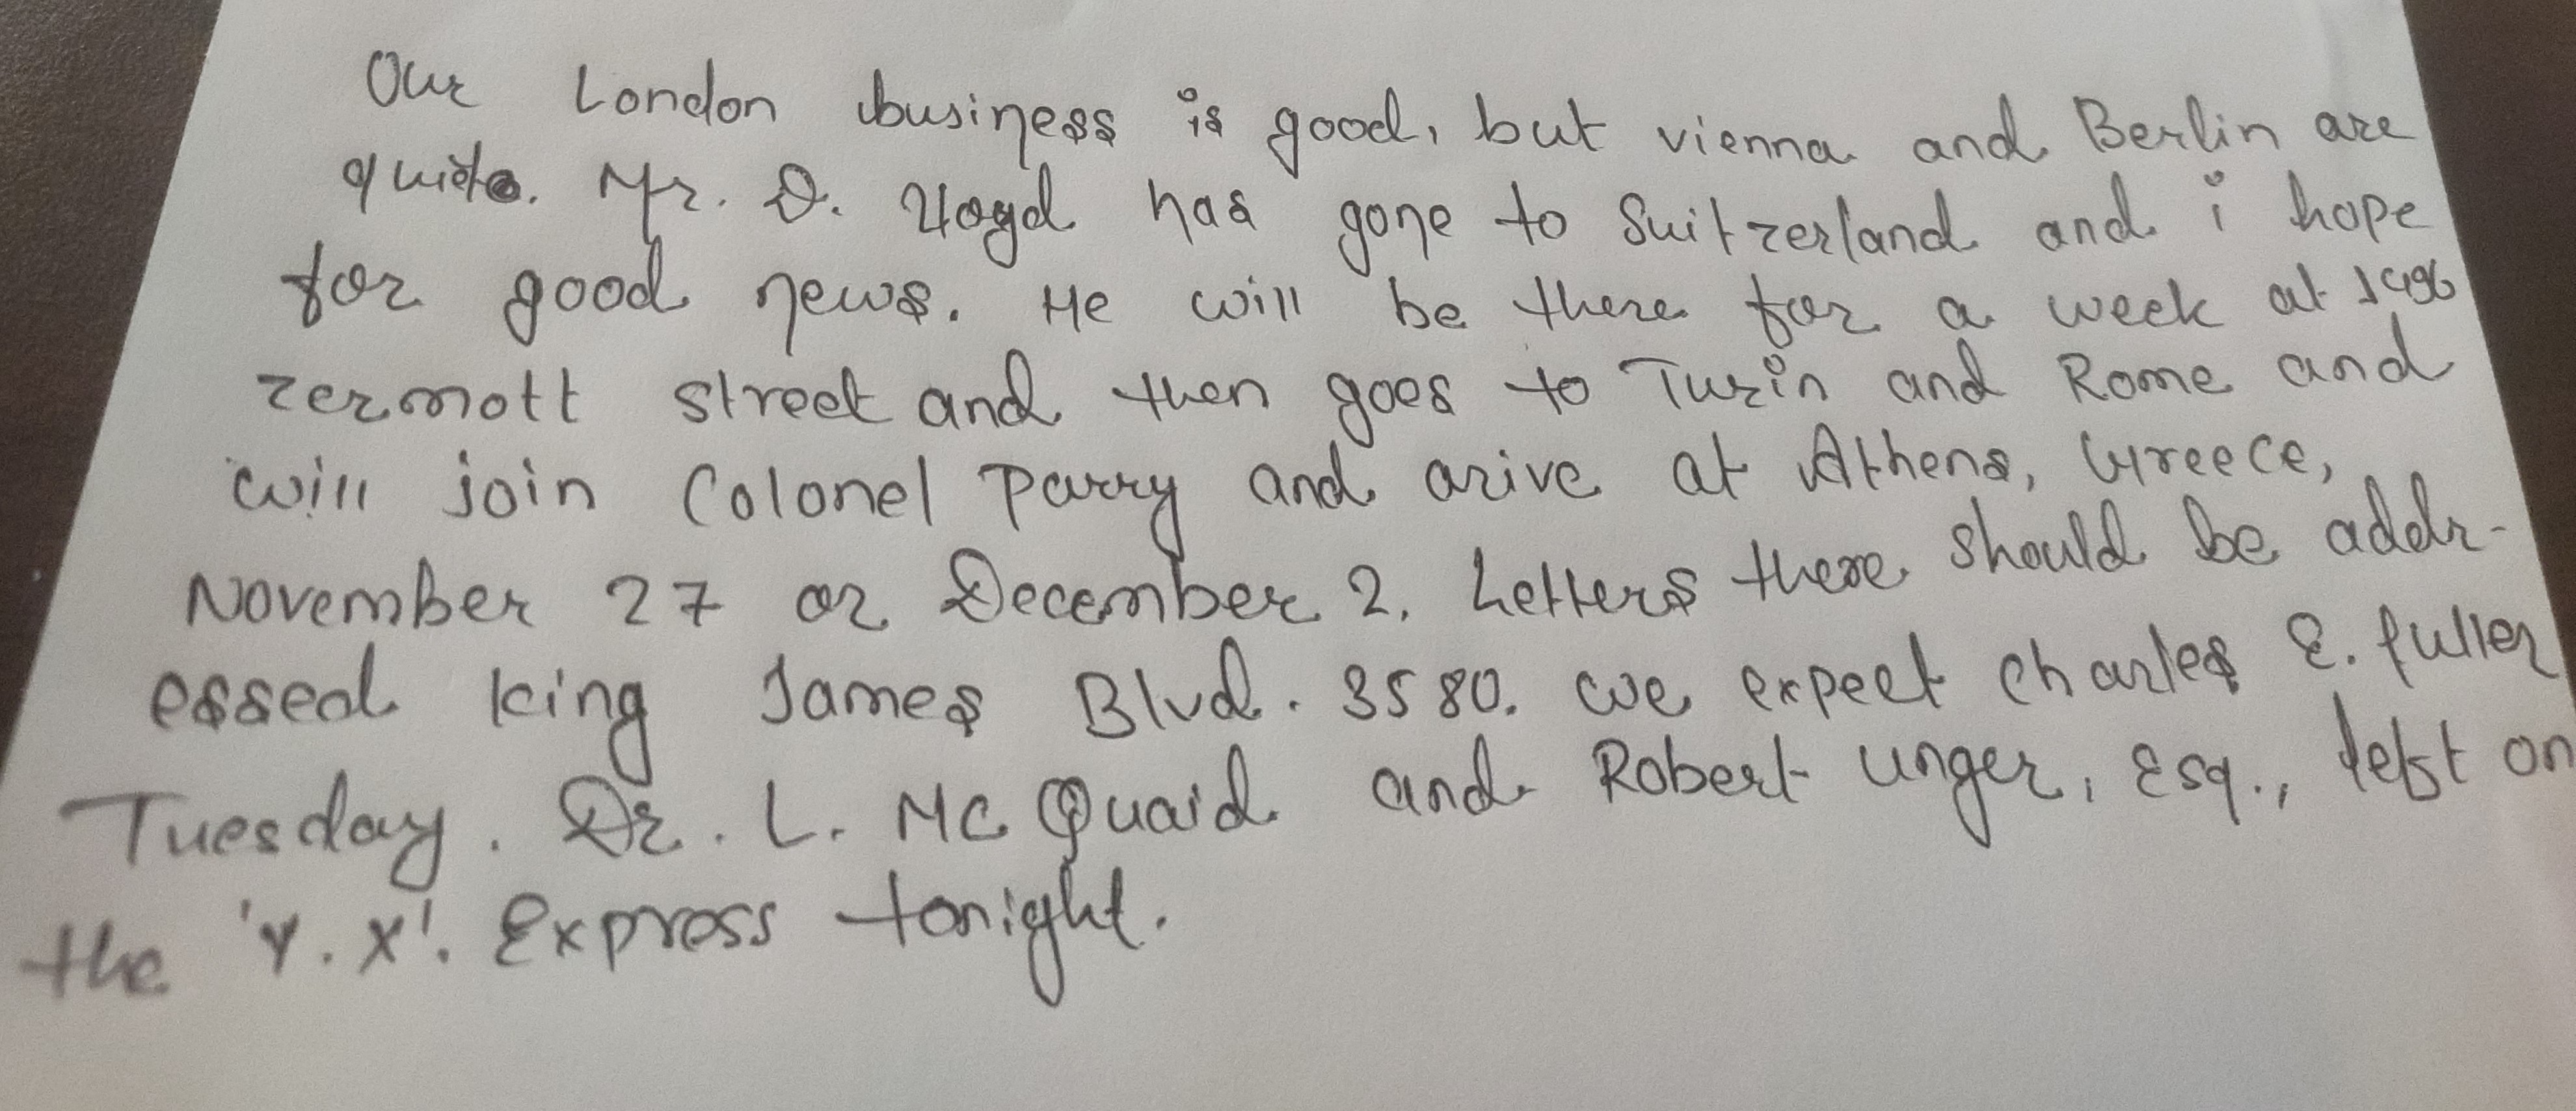 Our London business is good, but vienna and Berlin are
quite. Mr. D. Lloyd has gone to Suitzerland and i hope
for good news. He will be there for a week at 1496
zermott street and then goes to Turin and Rome and
will join Colonel Parry and arive at Athens, Greece,
November 27 or December 2. Letters there should be addr-
essed king James Blvd. 3580. we expect charles E. fuller
Tuesday. Dr. L. Mc Quaid and Robert unger, Esq., left on
the 'Y.X'. Express tonight.